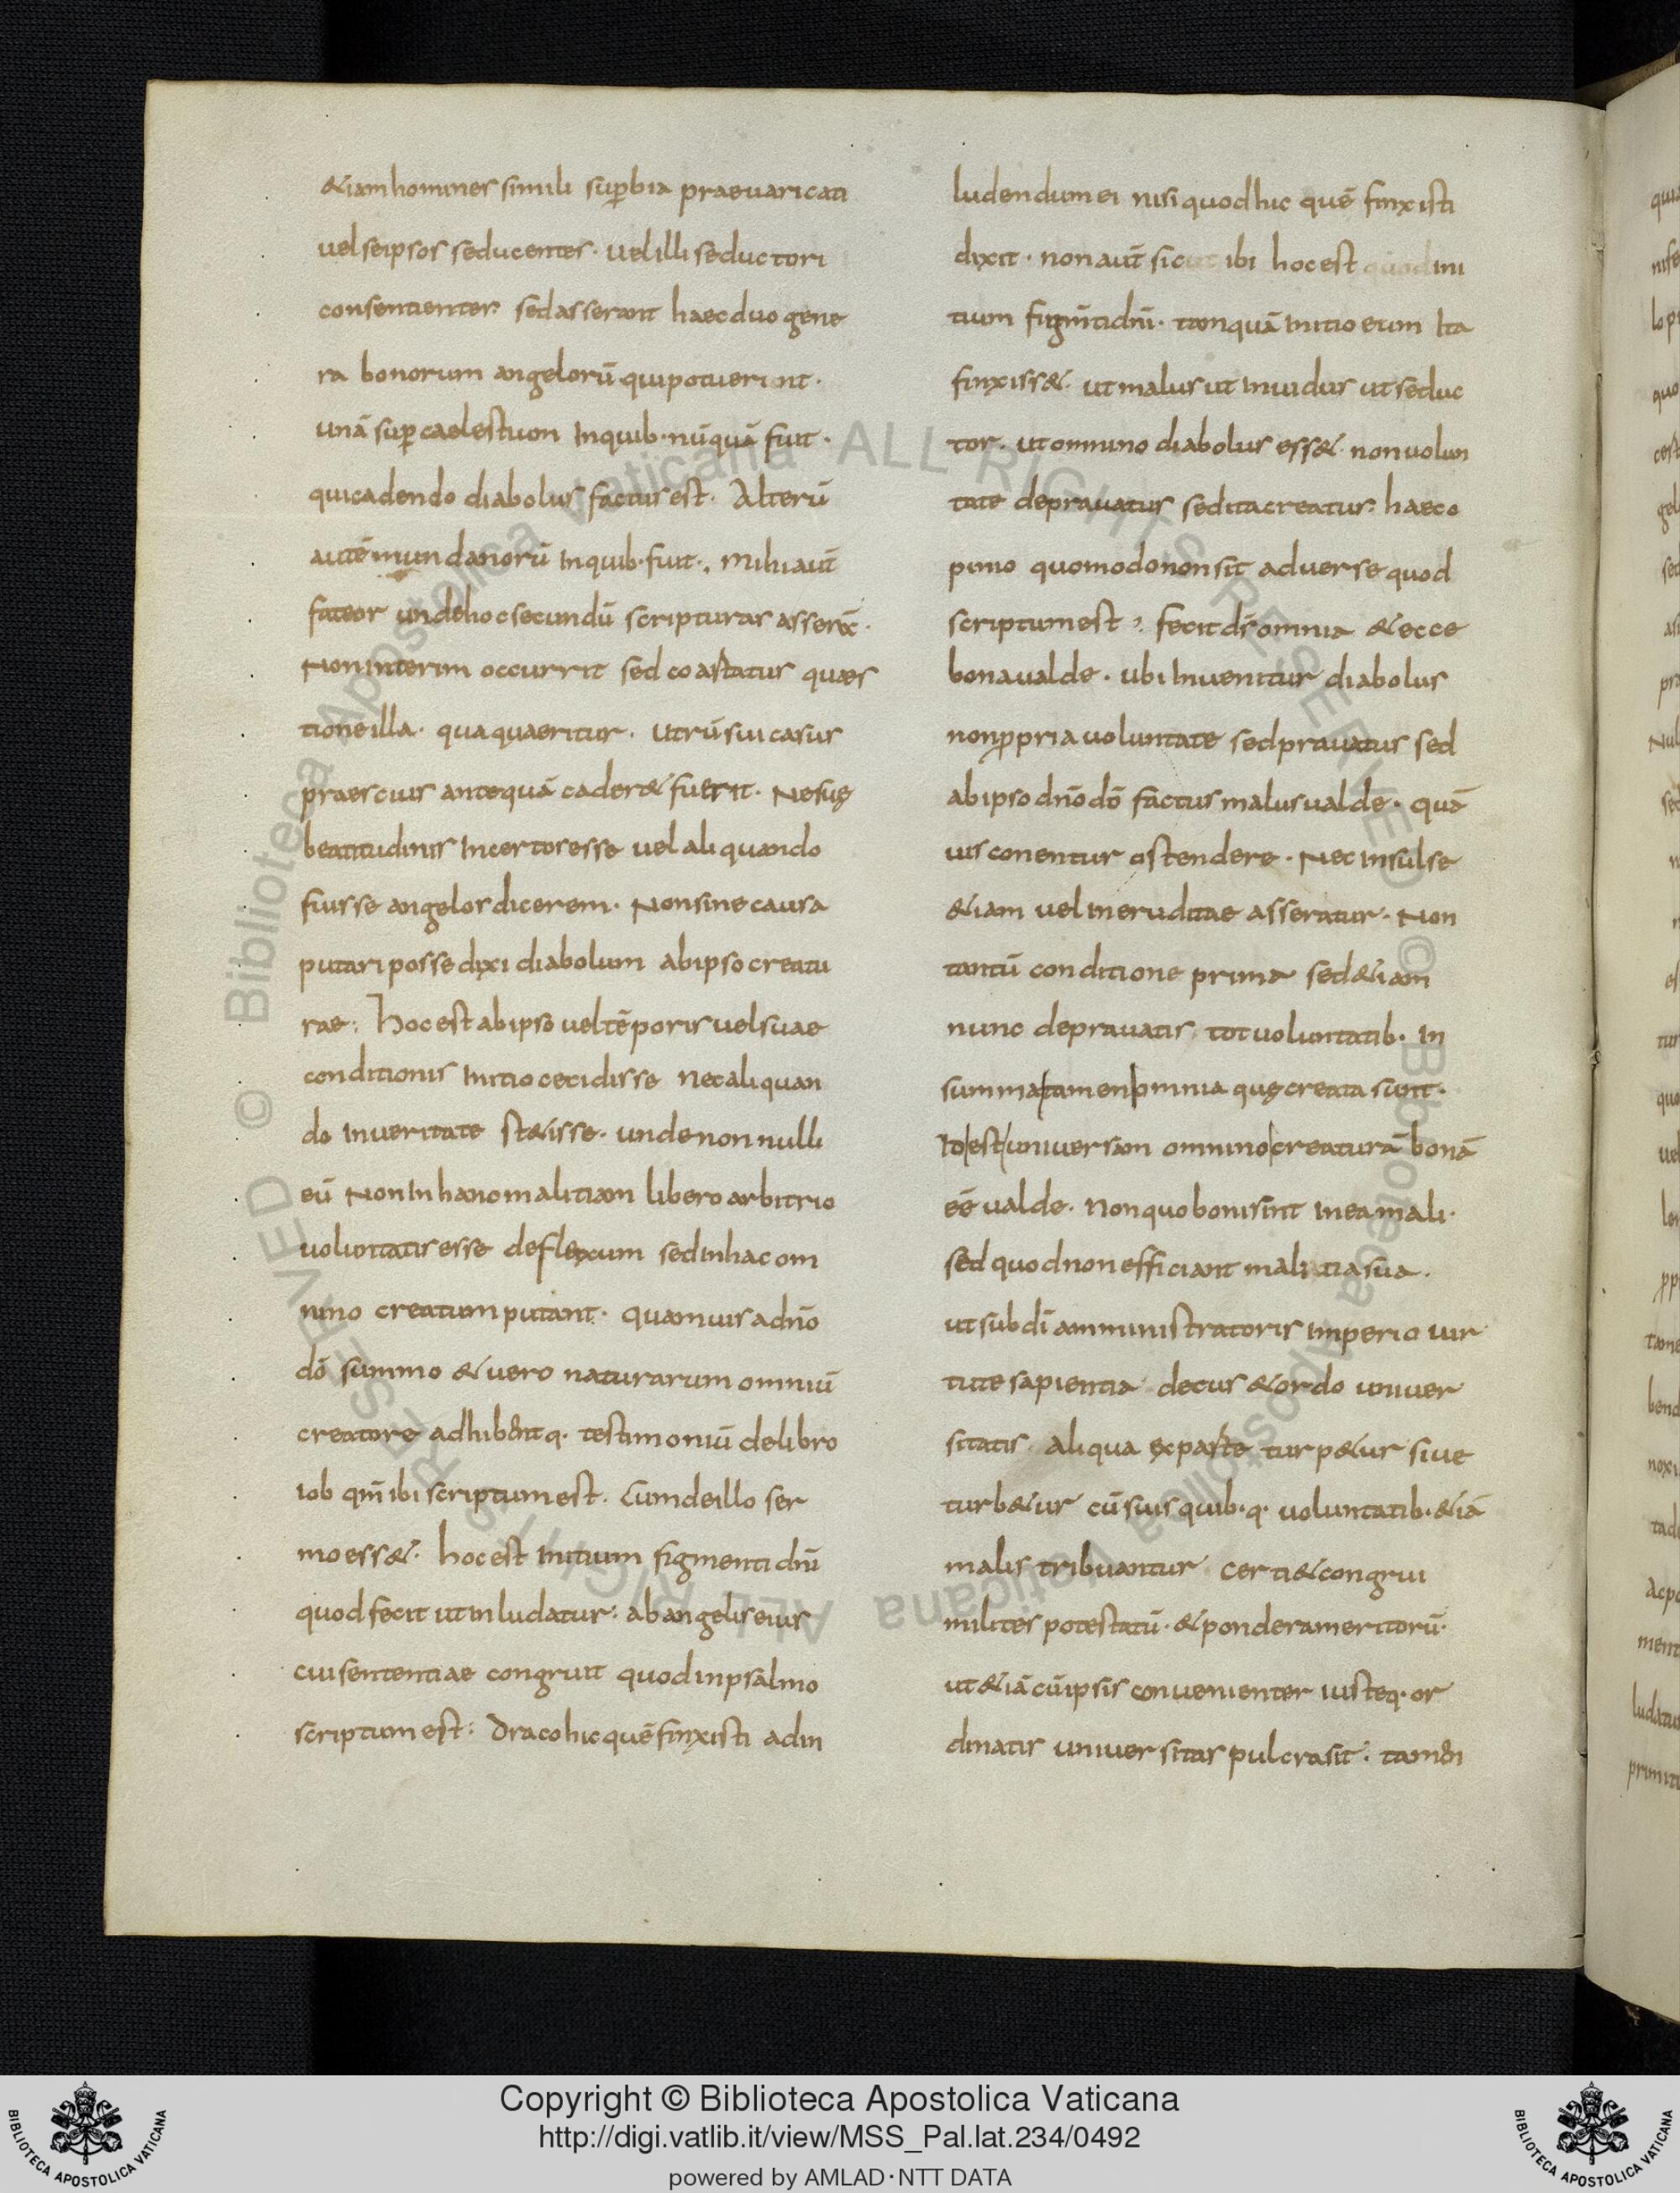 &iam homines simili sup̄bia praeuaricati
uel se ipsos seducentes· uel illi seductori
consentientes· sed asserant haec duo gene
ra bonorum angelorū qui potuerint·
unā sup̄ caelestium in quib· nūquā fuit·
qui cadendo diabolus factus est· Alterū
autē mundanorū in quib· fuit·, mihi aūt
fateor unde hoc secundū scripturas
Non interim occurrit sed coastatus quaes
tione illa· qua quaeritur· utrū sui casus
praescius antequā cader& fuerit· Ne suę
beatitudinis incertos esse uel aliquando
fuisse angelos dicerem· Non sine causa
putari posse dixi diabolum ab ipso creatu
rae· Hoc est ab ipso uel tēporis uel suae
conditionis initio cecidisse nec aliquan
do in ueritate st&isse· unde non nulli
eū Non in hanc malitiam libero arbitrio
uoluntatis esse deflexum sed in hac om
nino creatum putant· quamuis a dn̄o
dō summo & uero naturarum omniū
creatore adhibentq· testimoniū de libro
iob qm̄ ibi scriptum est· Cum de illo ser
mo ess&· hoc est initium figmenti dn̄i
quod fecit ut inludatur· ab angelis eius
cui sententiae congruit quod in psalmo
scriptum est· Draco hic quē finxisti ad in
ludendum ei nisi quod hic quē finxisti
dixit· non aūt sicut ibi hoc est quod ini
tium figm̄ti dn̄i· tamquā initio eum ita
finxiss&· ut malus ut inuidus ut seduc
tor· ut omnino diabolus ess&· non uolun
tate deprauatus sed ita creatus· haec o
pinio quomodo non sit aduerse quod
scriptum est· fecit ds̄ omnia & ecce
bona ualde· ubi inuenitur diabolus
non ꝓpria uoluntate sed prauatus sed
ab ipso dn̄o dō factus malus ualde· quā
uis conentur ostendere· Nec insulse
&iam uel ineruditae asseratur· Non
tantū conditione prima sed &iam
nunc deprauatis tot uoluntatib· in
summa tamen omnia quę creata sunt·
Id est uniuersam omnino creaturā bonā
eē ualde· Non quo boni sint in ea mali·
sed quod non efficiant malitia sua·
ut sub dī amministratoris imperio uir
tute sapientia decus & ordo uniuer
sitatis aliqua ex parte turp&ur siue
turb&ur cū suis quib·q· uoluntatib· &iā
malis tribuantur certi & congrui
milites potestatū· & pondera meritorū·
ut &iā cū ipsis conuenienter iusteq· or
dinatis uniuersitas pulcra sit· tamen
Copyright © Biblioteca Apostolica Vaticana
http://digi.vatlib.it/view/MSS_Pal.lat.234/0492
powered by AMLAD·NTT DATA
BIBLIOTECA APOSTOLICA VATICANA
BIBLIOTECA APOSTOLICA VATICANA